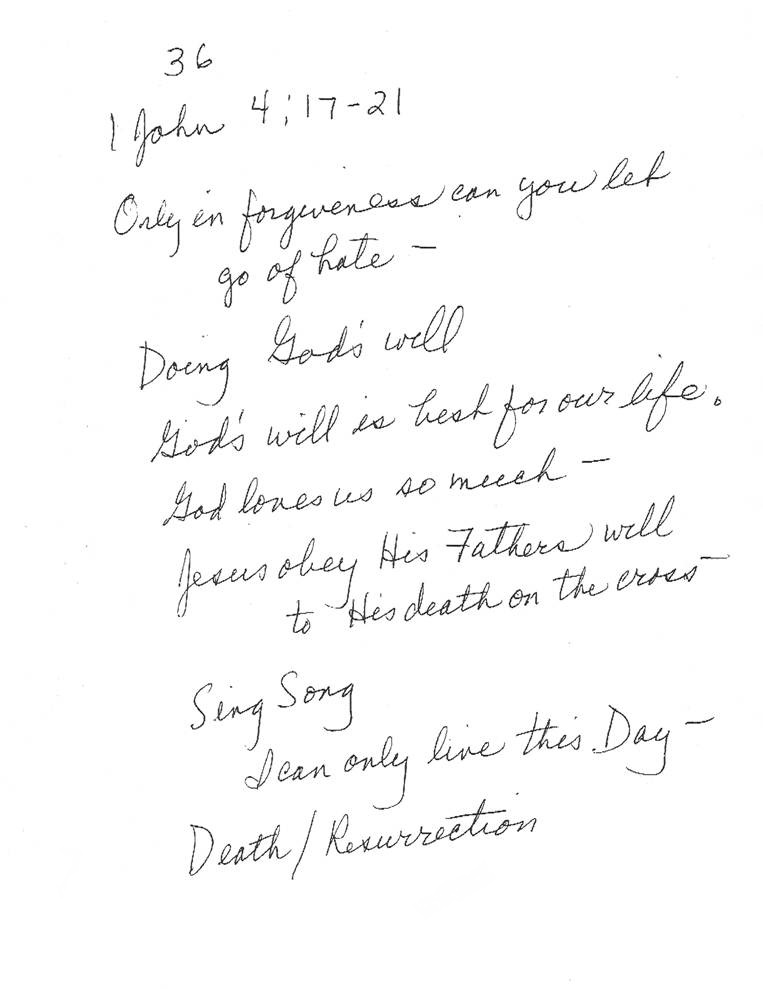 36
1 John 4:17-21
Only in forgiveness can you let
go of hate -
Doing God's will
God's will is best for our life.
God loves us so much -
Jesus obey His Fathers will
to His death on the cross -
Sing Song
I can only live this Day -
Death/Resurrection